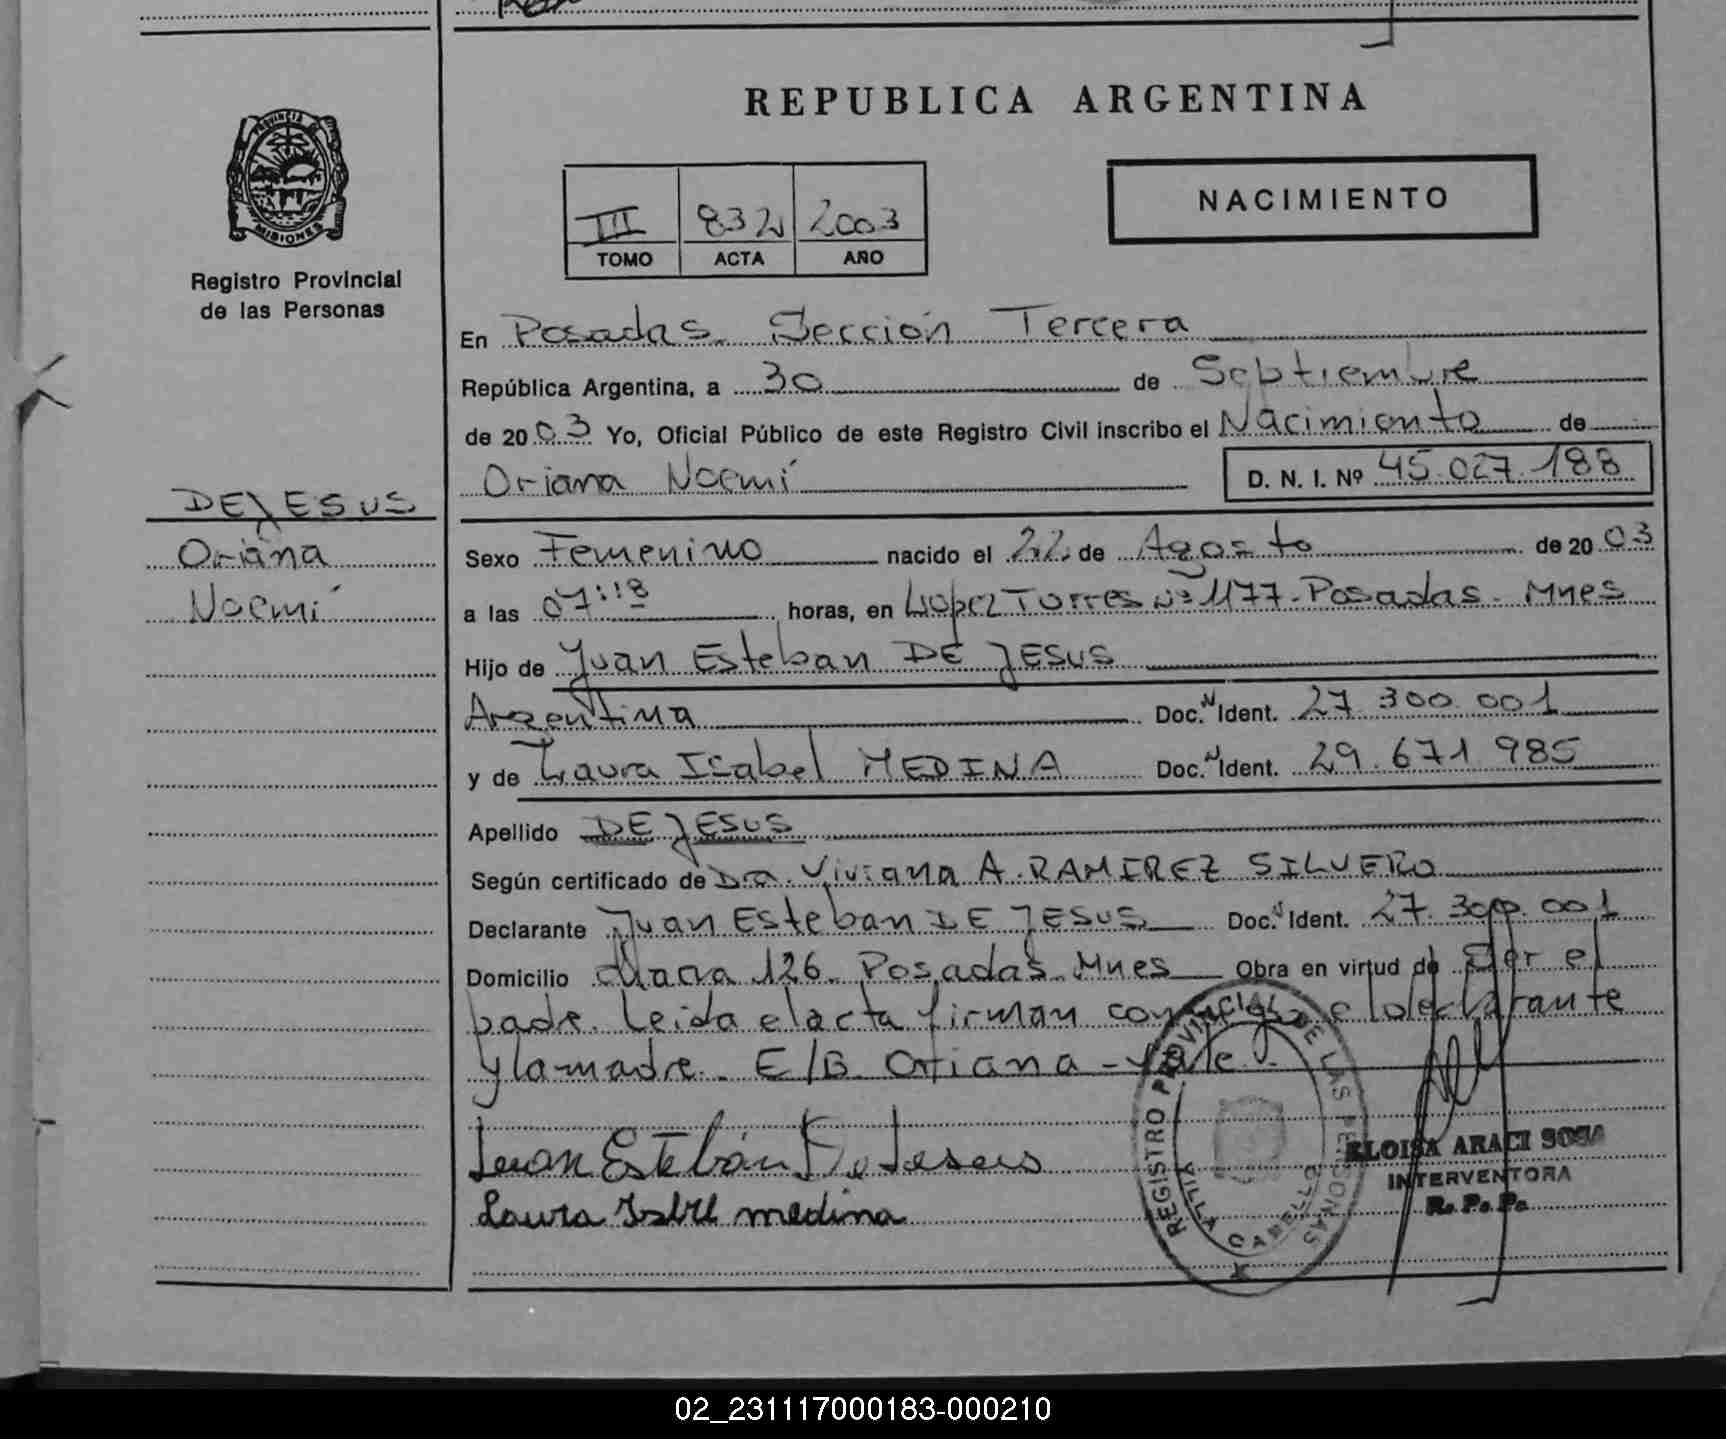 REPUBLICA ARGENTINA
PROVINCIA DE
MISIONES
Registro Provincial
de las Personas
III 832 2003
TOMO ACTA AÑO
NACIMIENTO
En Posadas Sección Tercera
República Argentina, a 30 de Septiembre
de 2003 Yo, Oficial Público de este Registro Civil inscribo el Nacimiento de
Oriana Noemí D. N. I. Nº 45.027.188
DE JESUS
Oriana
Noemí
Sexo Femenino nacido el 22 de Agosto de 2003
a las 07:18 horas, en Lopez Torres Nº 1177. Posadas. Mnes
Hijo de Juan Esteban DE JESUS
Argentina Doc. N Ident. 27 300 001
y de Laura Isabel MEDINA Doc. N Ident. 29.671 985
Apellido DE JESUS
Según certificado de Dra. Viviana A. RAMIREZ SILVERO
Declarante Juan Esteban DE JESUS Doc. N Ident. 27.300.001
Domicilio Chacra 126. Posadas. Mnes Obra en virtud de Ser el
padre. Leida el acta firman conmigo el declarante
y la madre. E/B Oriana - Vale.
Juan Estebán De Jesus
Laura Isbel medina
REGISTRO PROVINCIAL DE LAS PERSONAS
VILLA CABELLO
ELOISA ARACI SOSA
INTERVENTORA
R. P. P.
02_231117000183-000210